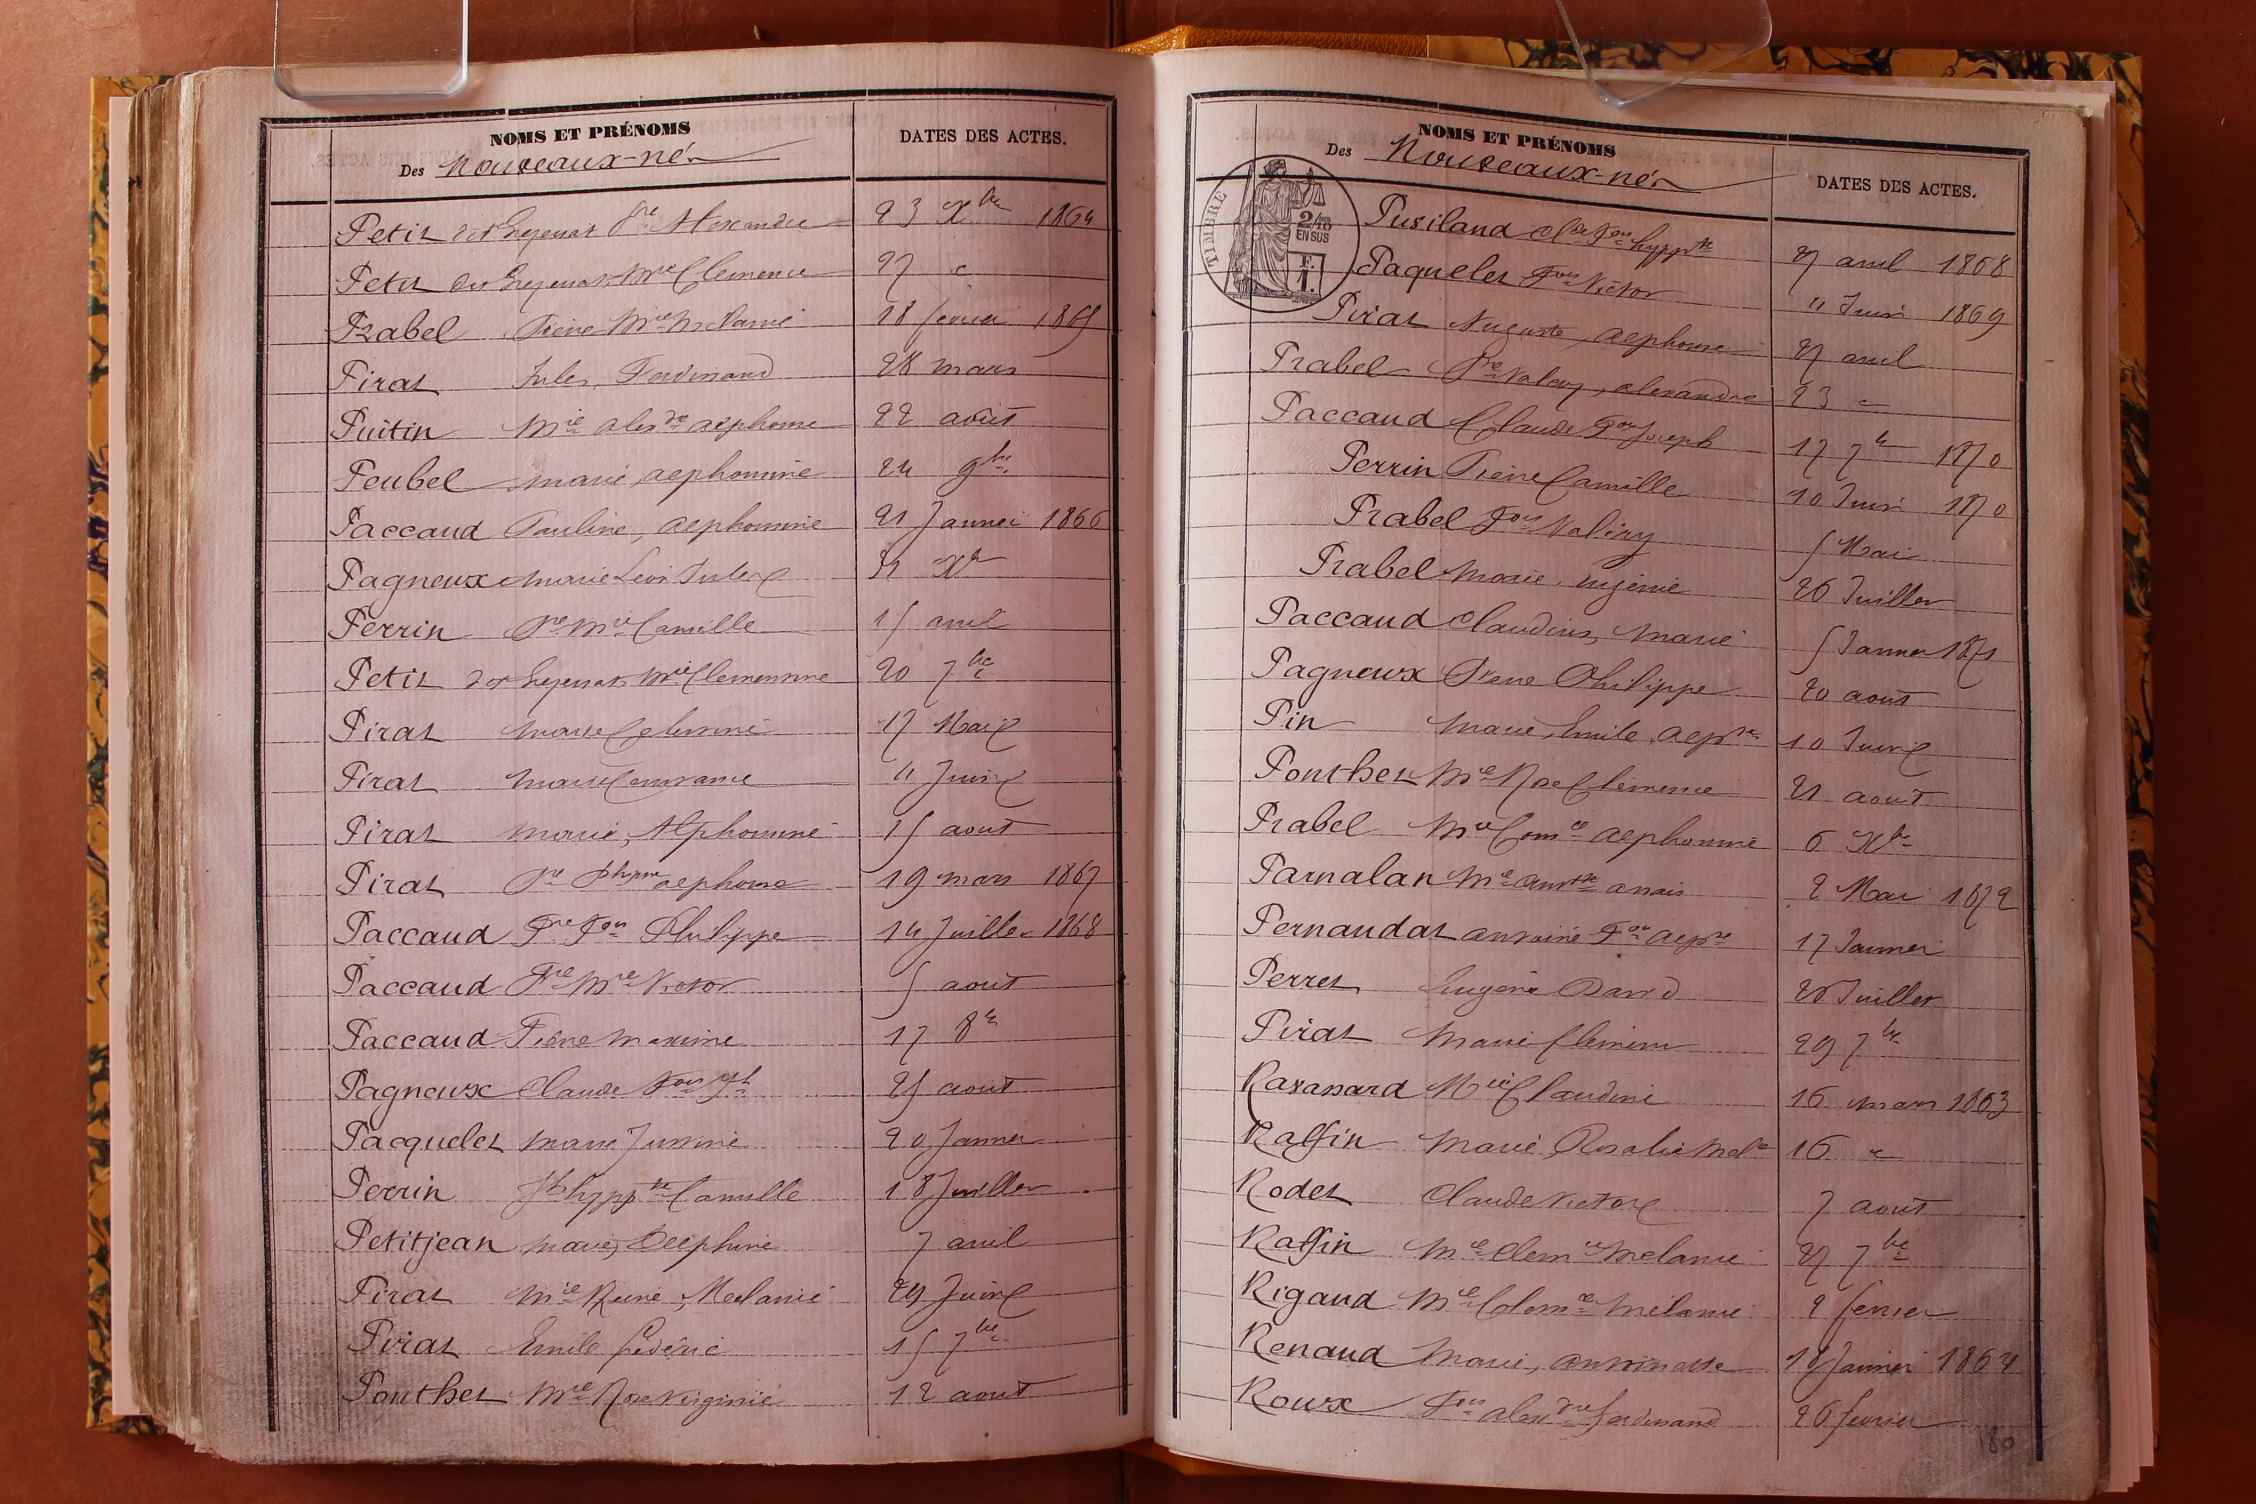 NOMS ET PRÉNOMS
Des Nouveaux-nés
DATES DES ACTES.
Petit dit Pre Alexandre 23 Xbre 1864
Petit dit Mie Clémence 27 "
Prabel Pierre Mie Melanie 18 février 1865
Pirat Jules, Ferdinand 28 mars
Puitin Mie Alexdre Alphonse 22 août
Peubel Marie, Alphonsine 24 9bre
Paccaud Pauline, Alphonsine 21 Janvier 1866
Pagneux Marie Léon Jules 31 Xbre
Perrin Pre Mie Camille 15 avril
Petit dit Mie Clementine 20 7bre
Pirat Marie 17 Mai
Pirat Marie Constance 11 Juin
Pirat Marie, Alphonsine 15 août
Pirat Pre Alphonse 19 mars 1867
Paccaud Pre Fois Philippe 14 Juillet 1868
Paccaud Pre Mie Victor 5 août
Paccaud Pierre Maxime 17 8bre
Pagneux Claude Fois Jh 25 août
Pacquelet Marie Justine 20 Janvier
Perrin Jh hyppte Camille 18 Juillet
Petitjean Marie, Delphine 7 avril
Pirat Mie Reine, Melanie 29 Juin
Pirat Emile fédéric 15 7bre
Ponthet Mie Rose Virginie 12 août
NOMS ET PRÉNOMS
Des Nouveaux-nés
DATES DES ACTES.
TIMBRE
2/10
EN SUS
F.
1.
Pusiland Cde Fois hyppte 27 avril 1868
Paquelet Fois Victor 11 Juin 1869
Pirat Auguste, Alphonse 27 avril
Prabel Pre Valery, Alexandre 23 "
Paccaud Claude Fois Joseph 17 7bre 1870
Perrin Pierre Camille 10 Juin 1870
Prabel Fois Valéry 5 Mai
Prabel Marie, Eugénie 26 Juillet
Paccaud Claudius, Marie 5 Janvier 1871
Pagneux Pierre Philippe 20 août
Pin Marie, Emile, Alphse 10 Juin
Ponthet Mie Rose Clémence 21 août
Prabel Mie Alphonsine 6 Xbre
Parnalan Mie Anais 2 Mai 1872
Pernaudat Antoine Fois Alphse 17 Janvier
Perret Eugène David 26 Juillet
Pirat Marie 29 7bre
Ravassard Mie Claudine 16 mars 1863
Raffin Marie, Rosalie Melie 16 "
Rodet Claude Victor 7 août
Raffin Mie Clemce Melanie 27 7bre
Rigaud Mie Melanie 2 février
Renaud Marie, Antoinette 18 Janvier 1864
Roux Fois Alexdre ferdinand 26 février
180